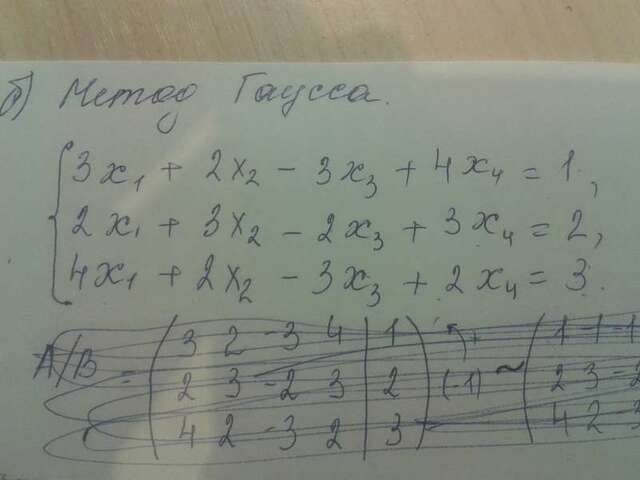 б) Метод Гаусса.
3x₁ + 2x₂ - 3x₃ + 4x₄ = 1,
2x₁ + 3x₂ - 2x₃ + 3x₄ = 2,
4x₁ + 2x₂ - 3x₃ + 2x₄ = 3.
3 2 -3 4 | 1 + 1 1 -1
A/B = 2 3 -2 3 | 2 (-1) ~ 2 3 -2
4 2 -3 2 | 3 4 2 -3